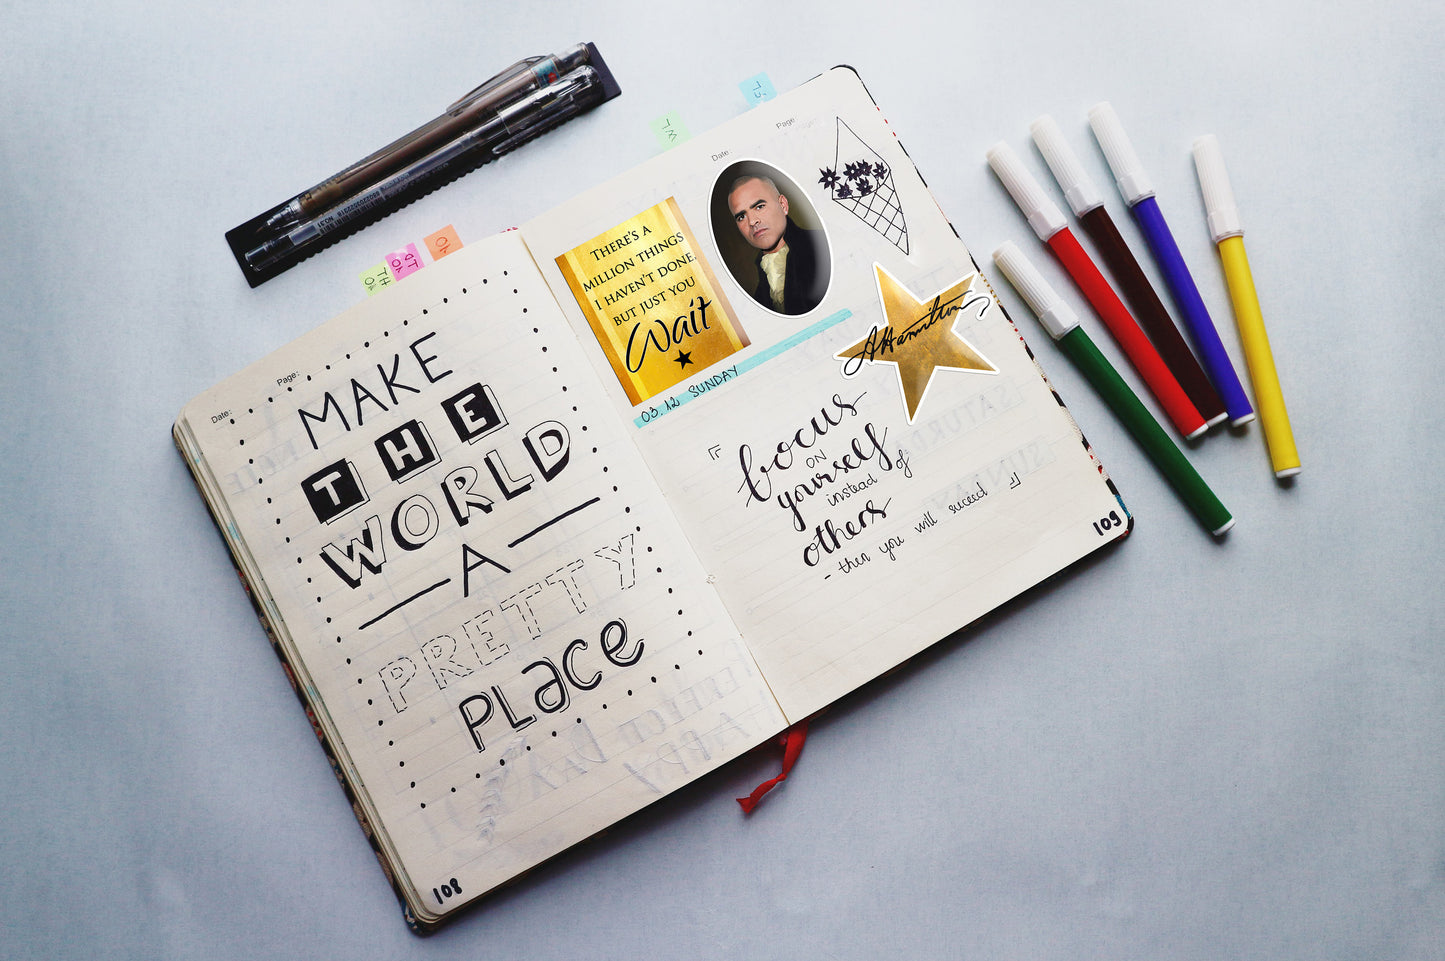 Page:
Date:
MAKE
THE
WORLD
A
PRETTY
PLace
108
Page
Date:
THERE'S A
MILLION THINGS
I HAVEN'T DONE,
BUT JUST YOU
Wait
A Hamilton
03.12 SUNDAY
focus
ON
yourself
instead of
others
- then you will succeed
109